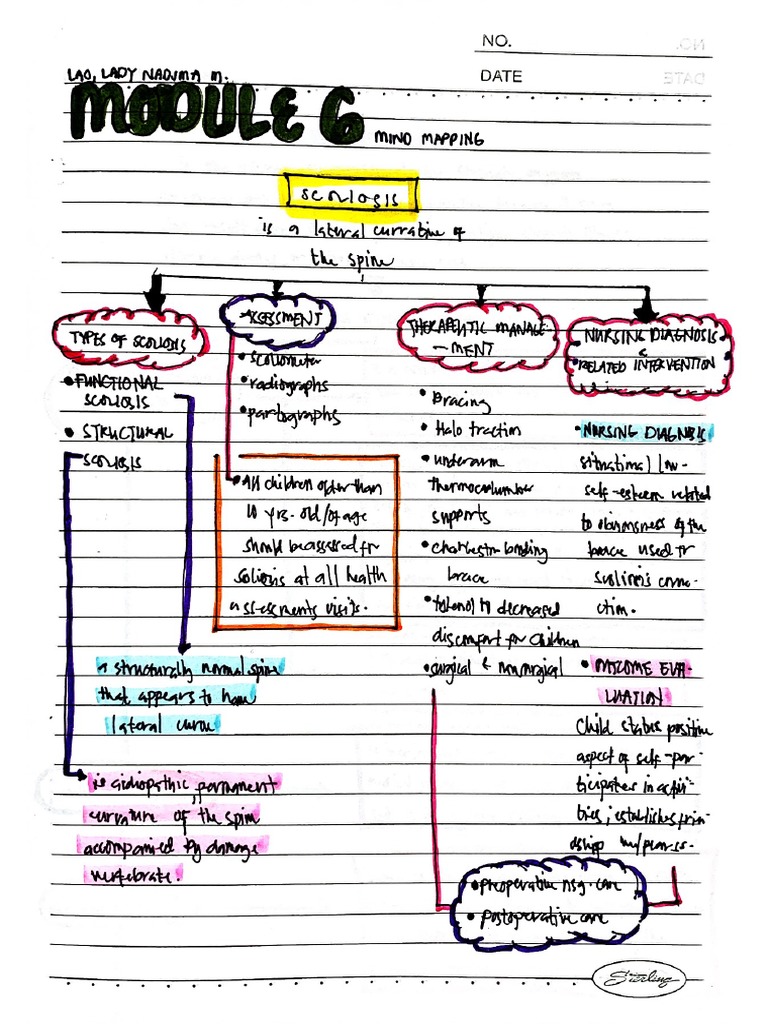 NO.
LAO, LADY NADJMA M.
DATE
MODULE 6 MIND MAPPING
SCOLIOSIS
is a lateral curvative of
the spine
TYPES OF SCOLIOSIS
• FUNCTIONAL
SCOLIOSIS
• STRUCTURAL
SCOLIOSIS
a structurally normal spine
that appears to have
lateral curve
is cidiopathic, permanent
curvature of the spine
accompanied by damage
vertebrate.
ASSESSMENT
• scoliometer
• radiographs
• partographs
• All children older than
10 yrs. old/of age
should be assessed for
soliosis at all health
assessments visits.
THERAPEUTIC MANAGE
-MENT
• Bracing
• Halo traction
• underarm
supports
• charleston bending
brace
to decreased
discomfort for children
• surgical & nonsurgical
NURSING DIAGNOSIS
&
• RELATED INTERVENTION
• NURSING DIAGNOSIS
situational low-
self-esteem related
to obviousness of the
brace used for
ction.
• OUTCOME EVA-
LUATION
Child states positive
aspect of self-par-
ticipates in activi-
ties; establishes frien-
dship w/
• preoperative nsg. care
• postoperative care
Sterling